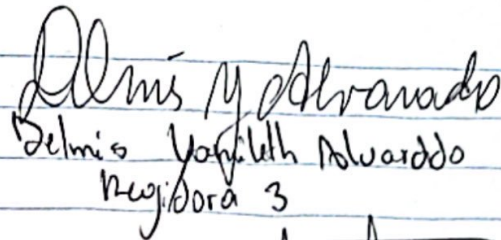 Delmis Y Alvarado
Delmis Yamileth Alvarddo
Regidora 3